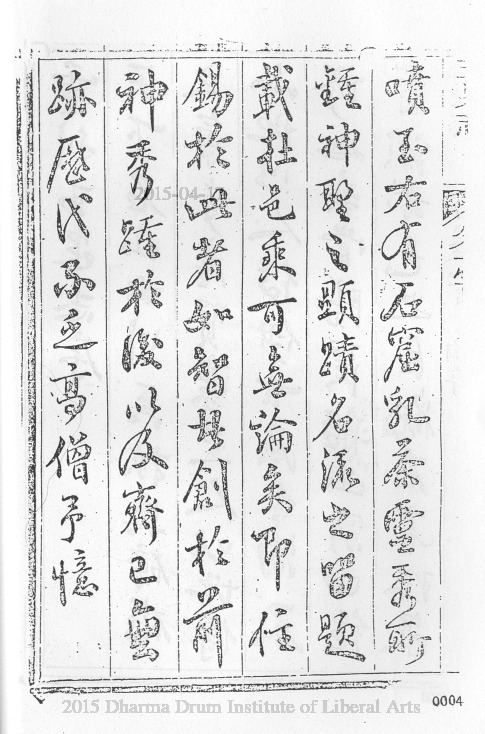 噴玉右有石窟乳茶靈秀所
鍾神聖之顯蹟名流之留題
載在邑乘可無論矣即住
錫於此者如智者創於前
神秀踵於後以及齊己無
跡歷代不乏高僧予憶
2015-04-1
0004
2015 Dharma Drum Institute of Liberal Arts